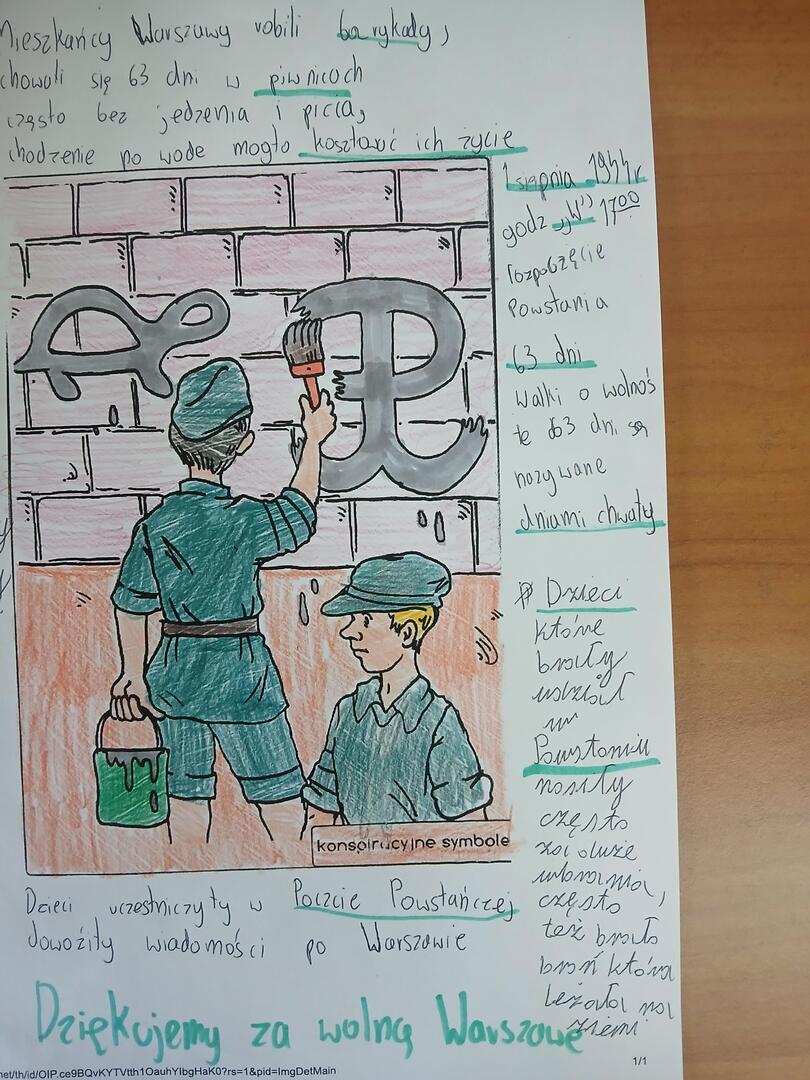 Mieszkańcy Warszawy robili barykady,
chowali się 63 dni w piwnicach
często bez jedzenia i picia,
chodzenie po wode mogło kosztować ich życie
1 sierpnia 1944 r
godz „W” 17⁰⁰
rozpoczęcie
Powstania
63 dni
Walki o wolnoś
te 63 dni są
nazywane
dniami chwały
Dzieci
które
brały
udział
w
Powstaniu
nosiły
często
za duże
ubrania,
często
też brała
broń która
leżała na
ziemi
konspiracyjne symbole
Dzieci uczestniczyły w Poczcie Powstańczej
dowoziły wiadomości po Warszawie
Dziękujemy za wolną Warszawe
net/th/id/OIP.ce9BQvKYTVtth1OauhYIbgHaK0?rs=1&pid=ImgDetMain
1/1